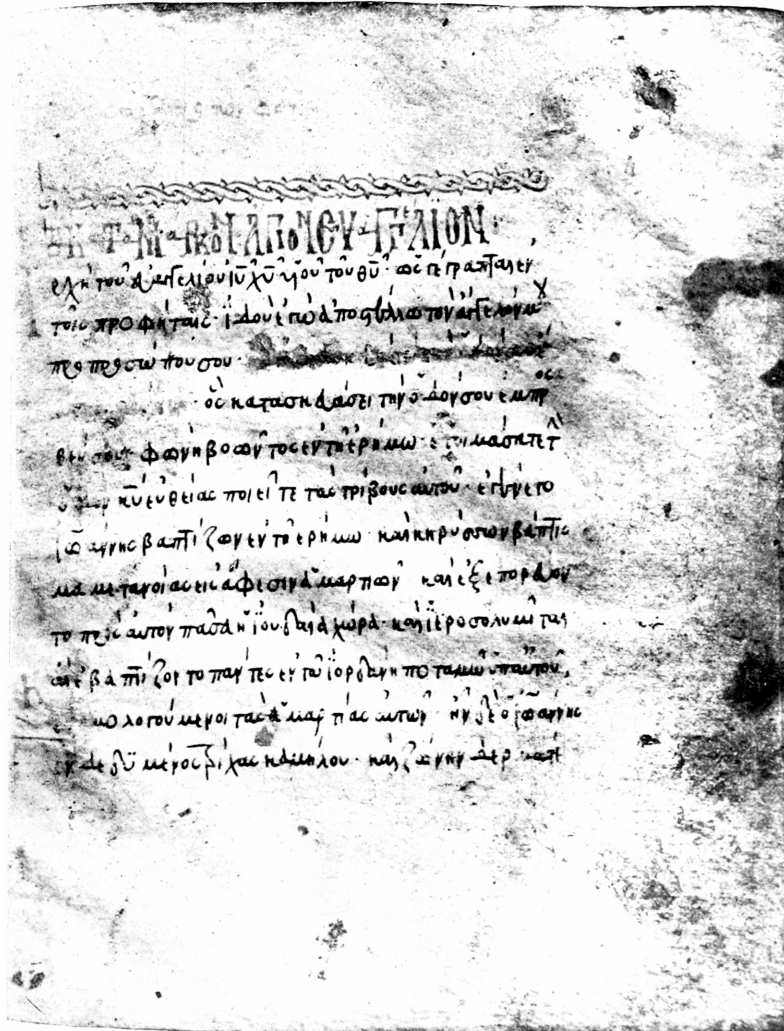 ἐκ τοῦ κατὰ Μάρκον ἅγιον εὐαγγέλιον
ἀρχὴ τοῦ εὐαγγελίου ιυ χυ υἱοῦ τοῦ θυ· ὡς γέγραπται ἐν
τοῖς προφήταις· ἰδοὺ ἐγὼ ἀποστέλλω τὸν ἄγγελόν μου
πρὸ προσώπου σου·
ὃς κατασκευάσει τὴν ὁδόν σου ἔμπροσ
θέν σου· φωνὴ βοῶντος ἐν τῇ ἐρήμω· ἑτοιμάσατε τ
ὁδὸν κυ εὐθείας ποιεῖτε τὰς τρίβους αὐτοῦ· ἐγένετο
ἰωάννης βαπτίζων ἐν τῇ ἐρήμω· καὶ κηρύσσων βάπτισ
μα μετανοίας εἰς ἄφεσιν ἁμαρτιῶν· καὶ ἐξεπορεύον
το πρὸς αὐτὸν πᾶσα ἡ ἰουδαία χώρα· καὶ ἱεροσολυμῖται
καὶ ἐβαπτίζοντο πάντες ἐν τῶ ἰορδάνη ποταμῶ ὑπ αὐτοῦ,
μολογούμενοι τὰς ἁμαρτίας αὐτῶν· ἦν δὲ ὁ ἰωάννης
ἐνδεδυμένος τρίχας καμήλου· καὶ ζώνην δερματί